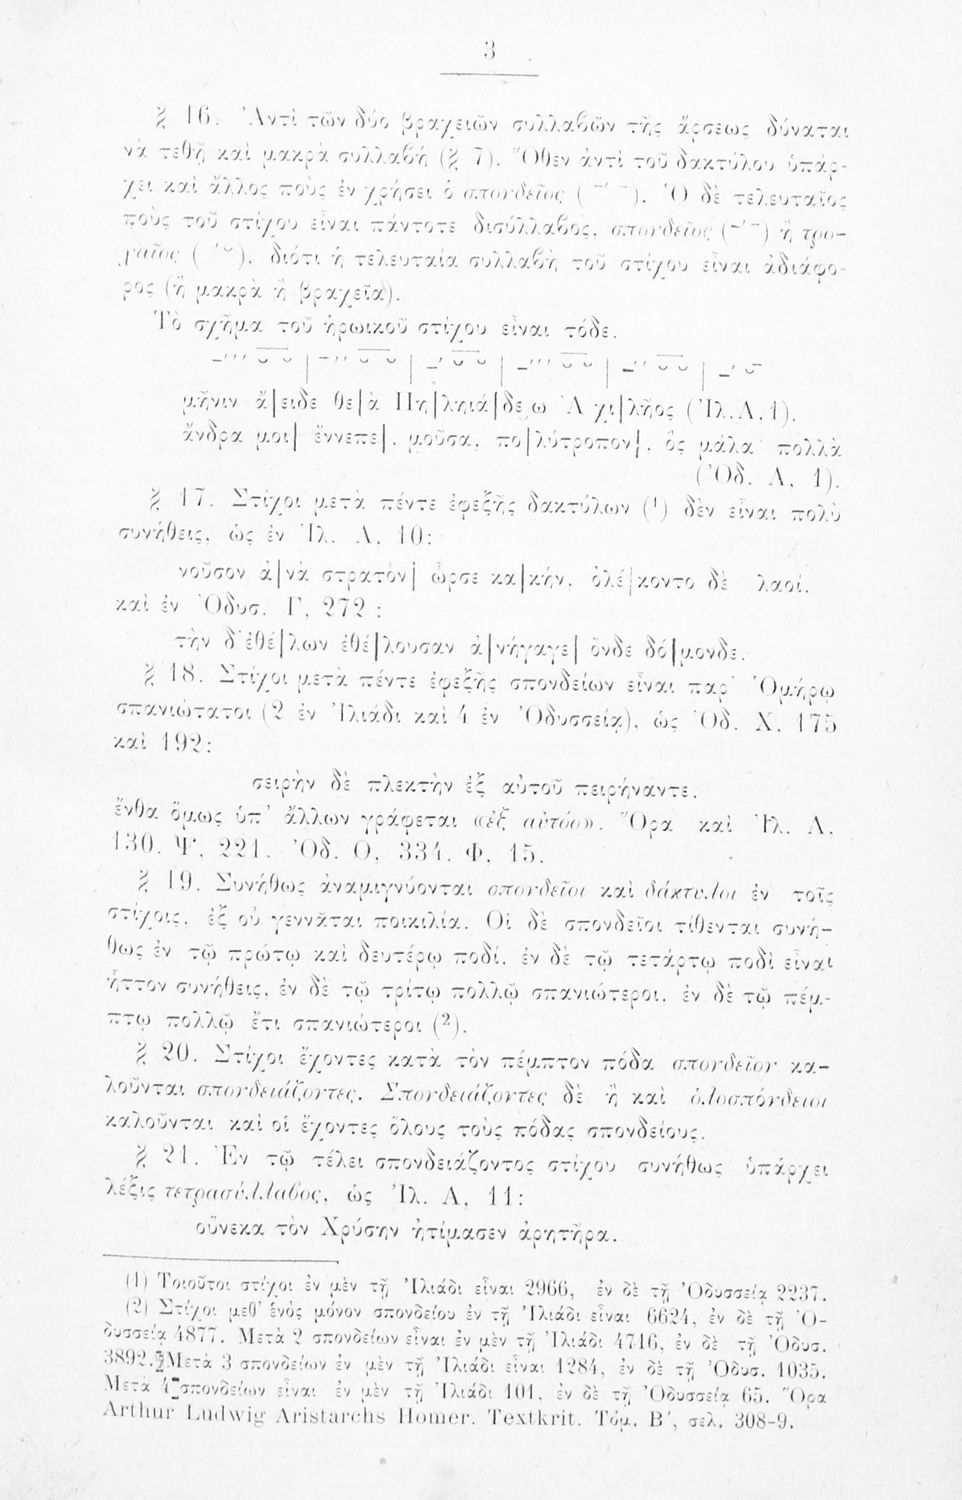 3
§ 16. Ἀντὶ τῶν δύο βραχειῶν συλλαβῶν τῆς ἄρσεως δύναται
νὰ τεθῇ καὶ μακρὰ συλλαβή (§ 7). Ὅθεν ἀντὶ τοῦ δακτύλου ὑπάρ-
χει καὶ ἄλλος ποὺς ἐν χρήσει ὁ σπονδεῖος (–́ –). Ὁ δὲ τελευταῖος
ποὺς τοῦ στίχου εἶναι πάντοτε δισύλλαβος, σπονδεῖος (–́ –) ἢ τρο-
χαῖος (–́ ⏑), διότι ἡ τελευταία συλλαβὴ τοῦ στίχου εἶναι ἀδιάφο-
ρος (ἢ μακρὰ ἢ βραχεῖα).
Τὸ σχῆμα τοῦ ἡρωικοῦ στίχου εἶναι τόδε.
μῆνιν ἄ|ειδε θε|ὰ Πη|ληιά|δεω Ἀχι|λῆος (Ἰλ. Α, 1).
ἄνδρα μοι| ἔννεπε|, μοῦσα, πο|λύτροπον|, ὃς μάλα πολλὰ
(Ὀδ. Α, 1).
§ 17. Στίχοι μετὰ πέντε ἐφεξῆς δακτύλων (¹) δὲν εἶναι πολὺ
συνήθεις, ὡς ἐν Ἰλ. Α, 10:
νοῦσον ἀ|νὰ στρατὸν| ὦρσε κα|κήν, ὀλέ|κοντο δὲ λαοί.
καὶ ἐν Ὀδυσ. Γ, 272 :
τὴν δ'ἐθέ|λων ἐθέ|λουσαν ἀ|νήγαγε| ὅνδε δό|μονδε.
§ 18. Στίχοι μετὰ πέντε ἐφεξῆς σπονδείων εἶναι παρ' Ὁμήρῳ
σπανιώτατοι (2 ἐν Ἰλιάδι καὶ 4 ἐν Ὀδυσσείᾳ), ὡς Ὀδ. Χ, 175
καὶ 192:
σειρὴν δὲ πλεκτὴν ἐξ αὐτοῦ πειρήναντε.
ἔνθα ὅμως ὑπ' ἄλλων γράφεται «ἐξ αὐτόο». Ὅρα καὶ Ἰλ. Λ.
130. Ψ, 221. Ὀδ. Ο, 334. Φ, 15.
§ 19. Συνήθως ἀναμιγνύονται σπονδεῖοι καὶ δάκτυλοι ἐν τοῖς
στίχοις, ἐξ οὗ γεννᾶται ποικιλία. Οἱ δὲ σπονδεῖοι τίθενται συνή-
θως ἐν τῷ πρώτῳ καὶ δευτέρῳ ποδί, ἐν δὲ τῷ τετάρτῳ ποδὶ εἶναι
ἧττον συνήθεις, ἐν δὲ τῷ τρίτῳ πολλῷ σπανιώτεροι, ἐν δὲ τῷ πέμ-
πτῳ πολλῷ ἔτι σπανιώτεροι (²).
§ 20. Στίχοι ἔχοντες κατὰ τὸν πέμπτον πόδα σπονδεῖον κα-
λοῦνται σπονδειάζοντες. Σπονδειάζοντες δὲ ἢ καὶ ὁλοσπόνδειοι
καλοῦνται καὶ οἱ ἔχοντες ὅλους τοὺς πόδας σπονδείους.
§ 21. Ἐν τῷ τέλει σπονδειάζοντος στίχου συνήθως ὑπάρχει
λέξις τετρασύλλαβος, ὡς Ἰλ. Α, 11:
οὕνεκα τὸν Χρύσην ἠτίμασεν ἀρητῆρα.
(1) Τοιοῦτοι στίχοι ἐν μὲν τῇ Ἰλιάδι εἶναι 2966, ἐν δὲ τῇ Ὀδυσσείᾳ 2237.
(2) Στίχοι μεθ' ἑνὸς μόνον σπονδείου ἐν τῇ Ἰλιάδι εἶναι 6624, ἐν δὲ τῇ Ὀ-
δυσσείᾳ 4877. Μετὰ 2 σπονδείων εἶναι ἐν μὲν τῇ Ἰλιάδι 4716, ἐν δὲ τῇ Ὀδυσ.
3892. Μετὰ 3 σπονδείων ἐν μὲν τῇ Ἰλιάδι εἶναι 1284, ἐν δὲ τῇ Ὀδυσ. 1035.
Μετὰ 4 σπονδείων εἶναι ἐν μὲν τῇ Ἰλιάδι 101, ἐν δὲ τῇ Ὀδυσσείᾳ 65. Ὅρα
Arthur Ludwig Aristarchs Homer. Textkrit. Τόμ. Β', σελ. 308-9.